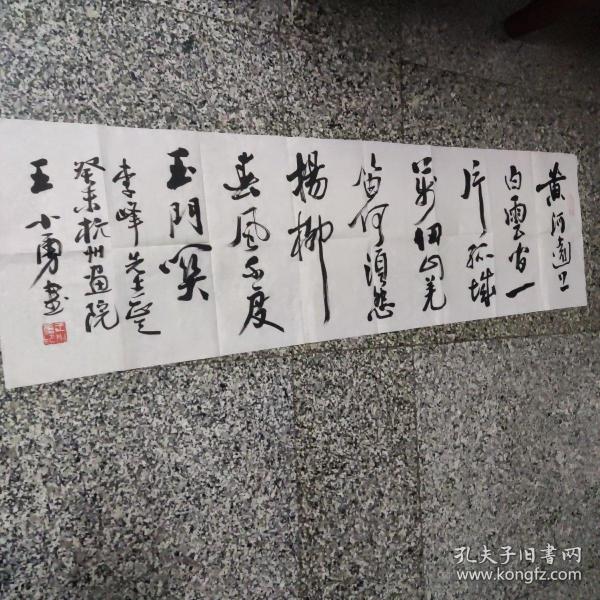 黄河遠上
白雲間一
片孤城
萬仞山羌
笛何須怨
楊柳
春風不度
玉門関
李峰先生正
癸未杭州画院
王小勇书
孔夫子旧书网
www.kongfz.com